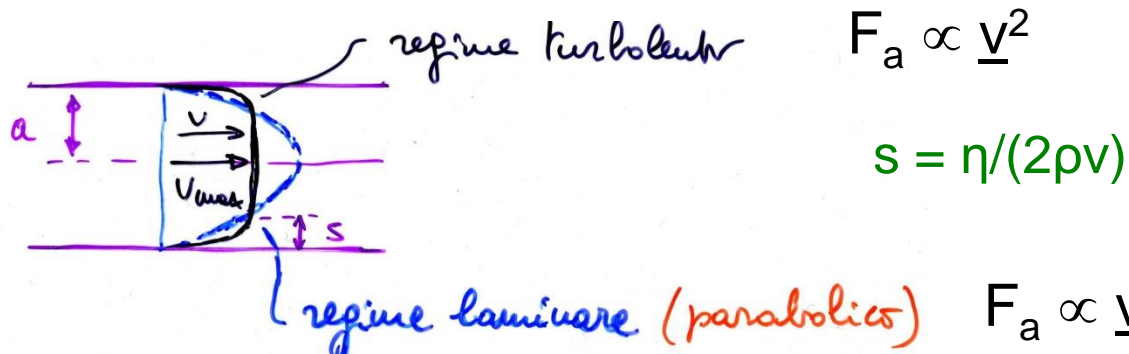 regime turbolento
F_a ∝ v²
a
v
v_max
s = η/(2ρv)
s
regime laminare (parabolico)
F_a ∝ v